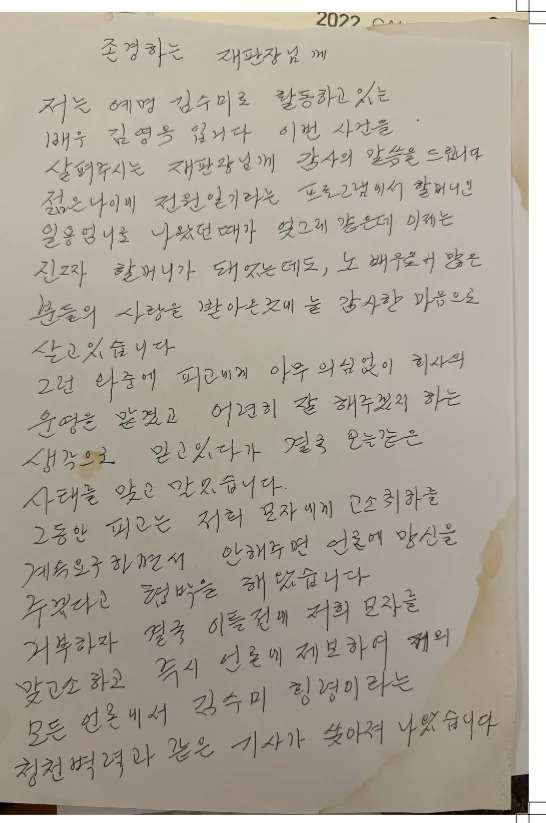 2022
존경하는 재판장님 께
저는 예명 김수미로 활동하고 있는
배우 김영옥 입니다 이번 사건을
살펴주시는 재판장님께 감사의 말씀을 드립니다
젊은나이에 전원일기라는 프로그램에서 할머니인
일용엄니로 나왔던 때가 엊그제 같은데 이제는
진짜 할머니가 돼 었는데도, 노 배우로서 많은
분들의 사랑을 받아온것에 늘 감사한 마음으로
살고 있습니다
그런 와중에 피고에게 아무 의심없이 회사의
운영을 맡겼고 어련히 잘 해주겠지 하는
생각으로 믿고있다가 결국 오늘같은
사태를 맞고 말았습니다.
그동안 피고는 저희 모자에게 고소취하를
계속요구하면서 안해주면 언론에 망신을
주겠다고 협박을 해 왔습니다
거부하자 결국 이틀전에 저희 모자를
맞고소 하고 즉시 언론에 제보하여 거의
모든 언론에서 김수미 횡령이라는
청천벽력과 같은 기사가 쏟아져 나왔습니다